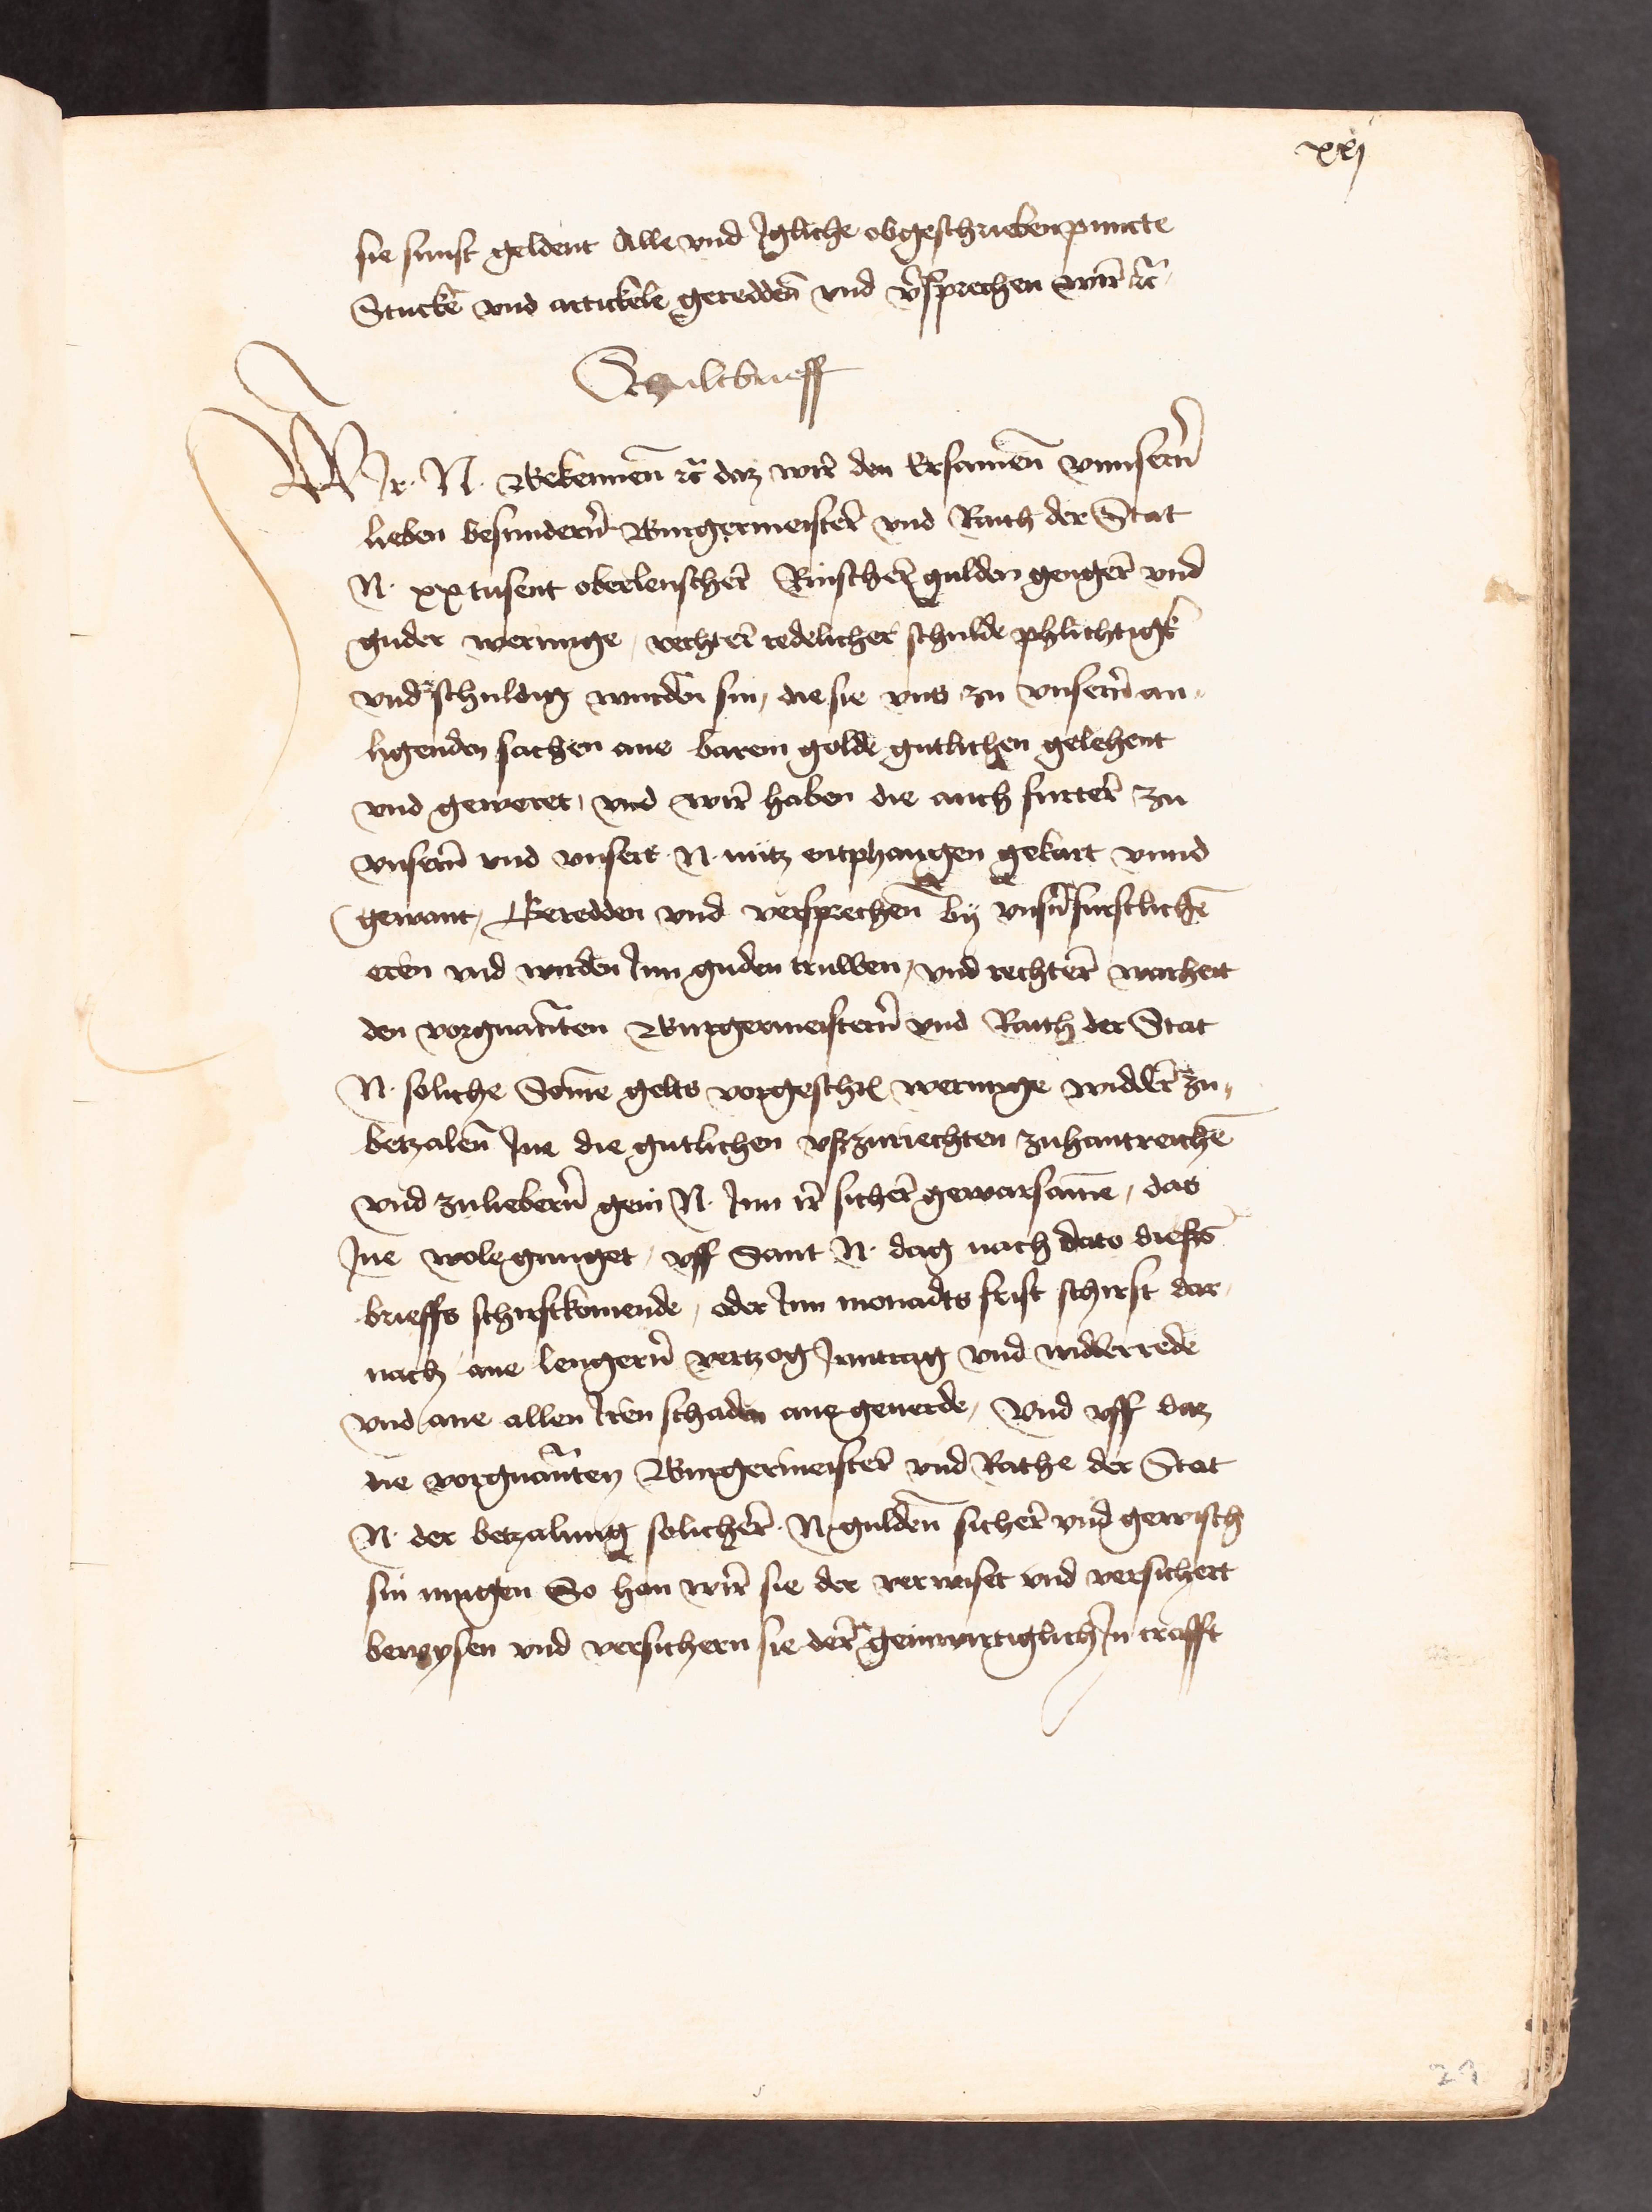 xxj
sie sunst geldent Alle vnd Jgliche obgeschrieben puncte
Stucke vnd artickele geredden vnd v̾sprechen wir ꝛc̃
Schultbrieff
WJr · N · Bekennen ꝛc̃ daz wir den Ersamen vnnsern̄
lieben besundern̄ Burgermeister vnd Raith der Stat
N · xx tusent oberlenscher Rinscher gulden genger vnd
guder werunge, rechter redelicher schulde phlichtigk
vnd schuldig wurden sin, die sie vns zu vnsern̄ an-
ligenden sachen ane barem golde gutlichen gelehent
vnd geweret, vnd wir haben die auch furter zu
vnsern̄ vnd vnsers N · nutz entphangen gekart vnnd
gewant, Geredden vnd versprechen by vnsn̄ furstlichē
eren vnd wirden Jnn guden truwen, vnd rechter warheit
den vorgnan̄ten Burgermeistern̄ vnd Raith der Stat
N · soliche Som̄e gelts vorgeschr̄ werunge widder zu-
betzalen Jne die gutlichen vszzuriechten zuhantreichē
vnd zuliebern̄ gein N · Jnn ir sicher gewarsame, das
Jne wole gnuget, vff Sant N · dag nach dato diess
brieffs schirstkomende, oder Jnn monadts frist schirst dar-
nach ane lengern̄ vertzog Jnntrag vnd widderrede
vnd ane allen Jren schaden ane geuerde, Vnd vff daz
die vorgnan̄ten Burgermeister vnd Rathe der Stat
N · der betzalung solicher · N · gulden sicher vnd gewisch
sin mugen So han wir sie der verwiset vnd versichert
bewysen vnd versichern sie der geinwirtiglich Jn crafft
23